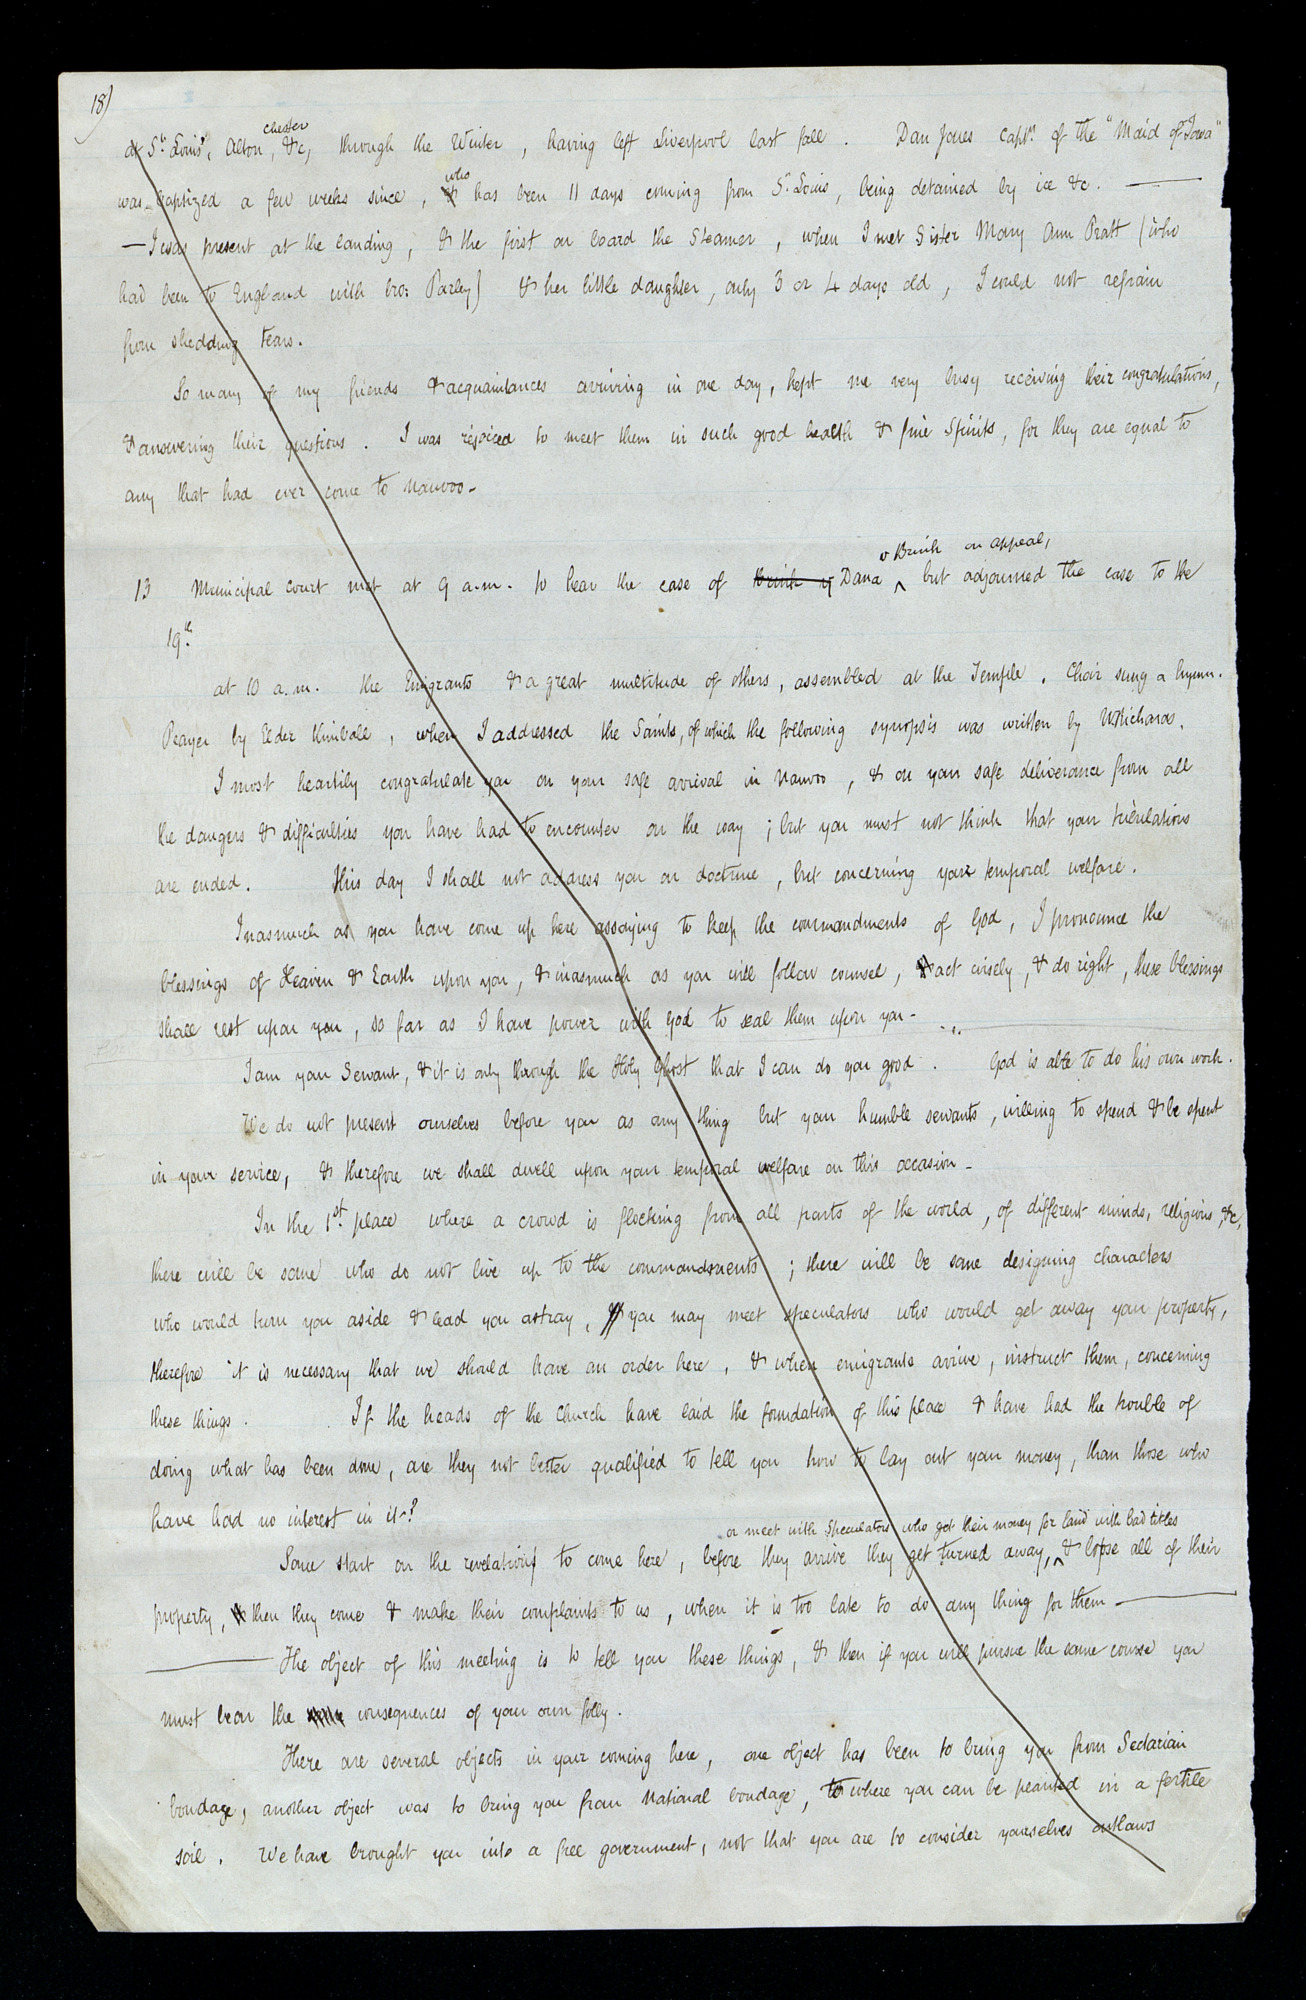 18)
at St. Louis, Alton, chester &c, through the Winter, having left Liverpool last fall. Dan Jones Captn. of the "Maid of Iowa"
was baptized a few weeks since, who has been 11 days coming from St. Louis, being detained by ice &c. —
— I was present at the landing, & the first on board the Steamer, when I met Sister Mary Ann Pratt (who
had been to England with bro: Parley) & her little daughter, only 3 or 4 days old, I could not refrain
from shedding tears.
So many of my friends & acquaintances arriving in one day, kept me very busy receiving their congratulations,
& answering their questions. I was rejoiced to meet them in such good health & fine Spirits, for they are equal to
any that had ever come to Nauvoo-
13 Municipal court met at 9 a.m. to hear the case of Brink v Dana v Brink on appeal, but adjourned the case to the
19th.
at 10 a.m. the Emigrants & a great multitude of others, assembled at the Temple. Choir sung a hymn.
Prayer by Elder Kimball, when I addressed the Saints, of which the following synopsis was written by W Richards.
I most heartily congratulate you on your safe arrival in Nauvoo, & on your safe deliverance from all
the dangers & difficulties you have had to encounter on the way; but you must not think that your tribulations
are ended. This day I shall not address you on doctrine, but concerning your temporal welfare.
Inasmuch as you have come up here assaying to keep the commandments of God, I pronounce the
blessings of Heaven & Earth upon you, & inasmuch as you will follow counsel, & act wisely, & do right, these blessings
shall rest upon you, so far as I have power with God to seal them upon you-
I am your Servant, & it is only through the Holy Ghost that I can do you good. God is able to do his own work.
We do not present ourselves before you as any thing but your humble servants, willing to spend & be spent
in your service, & therefore we shall dwell upon your temporal welfare on this occasion-
In the 1st. place where a crowd is flocking from all parts of the world, of different minds, religions, &c,
there will be some who do not live up to the commandments; there will be some designing characters
who would turn you aside & lead you astray, you may meet speculators who would get away your property,
therefore it is necessary that we should have an order here, & when emigrants arrive, instruct them, concerning
these things. If the heads of the Church have laid the foundation of this place & have had the trouble of
doing what has been done, are they not better qualified to tell you how to lay out your money, than those who
have had no interest in it?
or meet with Speculators who get their money for land with bad titles
Some start on the revelations to come here, before they arrive they get turned away, & loose all of their
property, then they come & make their complaints to us, when it is too late to do any thing for them —
— The object of this meeting is to tell you these things, & then if you will pursue the same course you
must bear the consequences of your own folly.
There are several objects in your coming here, one object has been to bring you from Sectarian
bondage, another object was to bring you from National bondage, to where you can be planted in a fertile
soil. We have brought you into a free government, not that you are to consider yourselves outlaws